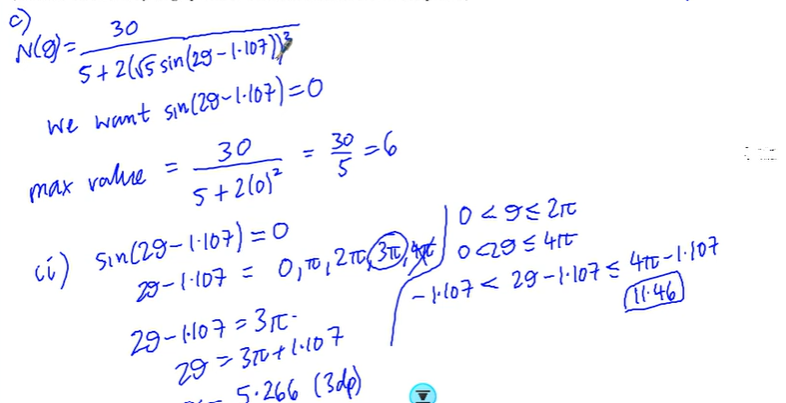 c)
N(θ) = 30 / 5 + 2(√5 sin(2θ - 1.107))²
we want sin(2θ - 1.107) = 0
max value = 30 / 5 + 2(0)² = 30/5 = 6
(ii) sin(2θ - 1.107) = 0
2θ - 1.107 = 0, π, 2π, 3π, 4π
2θ - 1.107 = 3π.
2θ = 3π + 1.107
= 5.266 (3dp)
0 < θ ≤ 2π
0 < 2θ ≤ 4π
-1.107 < 2θ - 1.107 ≤ 4π - 1.107
11.46